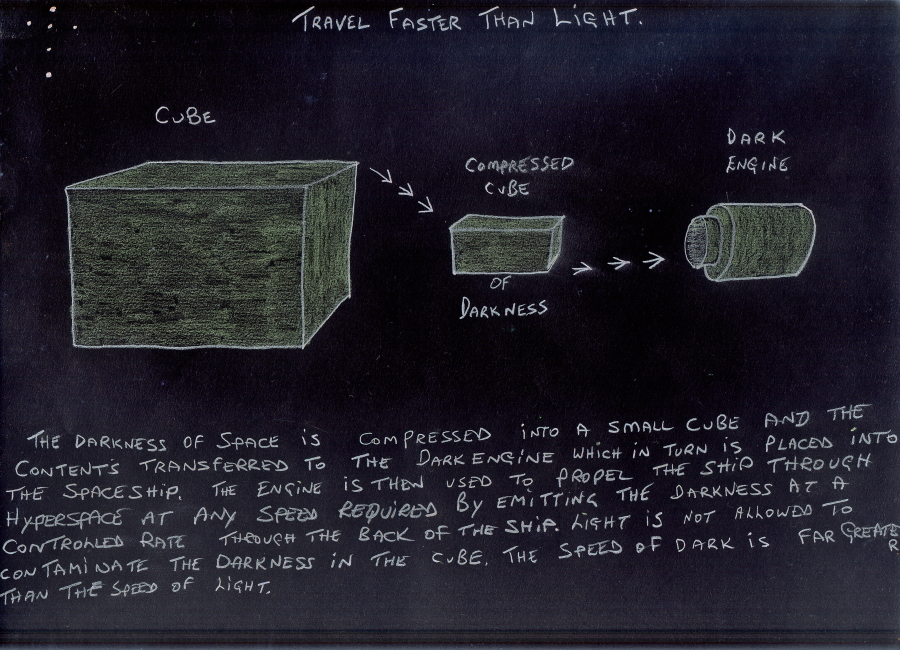 TRAVEL FASTER THAN LIGHT.
CUBE
COMPRESSED
CUBE
OF
DARKNESS
DARK
ENGINE
THE DARKNESS OF SPACE IS COMPRESSED INTO A SMALL CUBE AND THE
CONTENT'S TRANSFERRED TO THE DARK ENGINE WHICH IN TURN IS PLACED INTO
THE SPACESHIP. THE ENGINE IS THEN USED TO PROPEL THE SHIP THROUGH
HYPERSPACE AT ANY SPEED REQUIRED BY EMITTING THE DARKNESS AT A
CONTROLLED RATE THROUGH THE BACK OF THE SHIP. LIGHT IS NOT ALLOWED TO
CONTAMINATE THE DARKNESS IN THE CUBE. THE SPEED OF DARK IS FAR GREATER
THAN THE SPEED OF LIGHT.